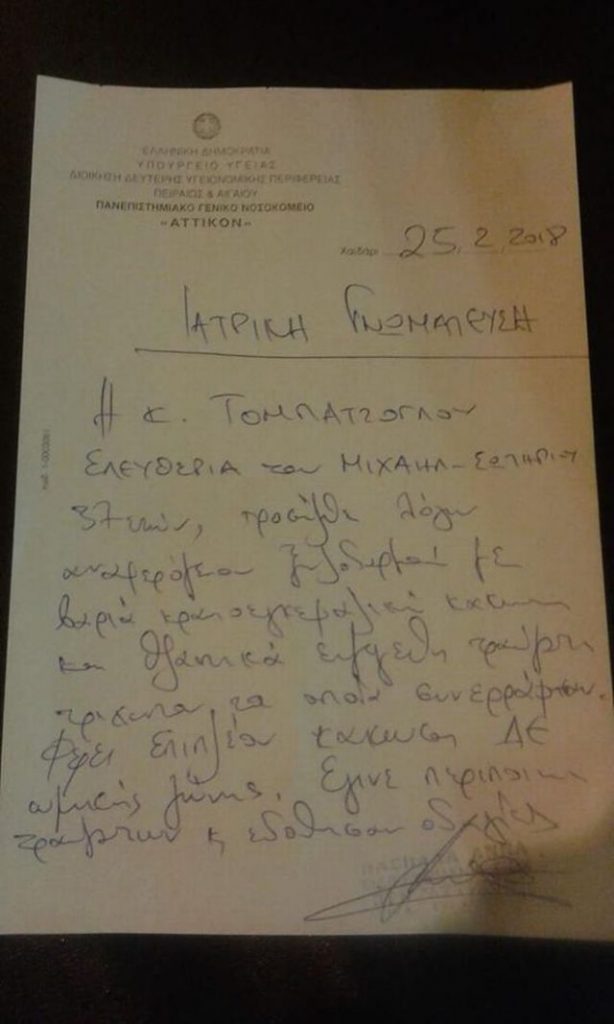 ΕΛΛΗΝΙΚΗ ΔΗΜΟΚΡΑΤΙΑ
ΥΠΟΥΡΓΕΙΟ ΥΓΕΙΑΣ
ΔΙΟΙΚΗΣΗ ΔΕΥΤΕΡΗΣ ΥΓΕΙΟΝΟΜΙΚΗΣ ΠΕΡΙΦΕΡΕΙΑΣ
ΠΕΙΡΑΙΩΣ & ΑΙΓΑΙΟΥ
ΠΑΝΕΠΙΣΤΗΜΙΑΚΟ ΓΕΝΙΚΟ ΝΟΣΟΚΟΜΕΙΟ
«ΑΤΤΙΚΟΝ»
Χαϊδάρι 25.2.2018
ΙΑΤΡΙΚΗ ΓΝΩΜΑΤΕΥΣΗ
Η κ. ΤΟΜΠΑΤΖΟΓΛΟΥ
ΕΛΕΥΘΕΡΙΑ του ΜΙΧΑΗΛ-ΣΩΤΗΡΙΟΥ
37 ετών, προσήλθε λόγω
αναφερόμενου ξυλοδαρμού με
βαριά κρανιοεγκεφαλική κάκωση
και θλαστικά τραύματα
τριχωτού, τα οποία συνερράφησαν.
Φέρει επιπλέον κάκωση ΔΕ
ωμικής ζώνης. Έγινε περιποίηση
τραυμάτων κ εδόθησαν οδηγίες